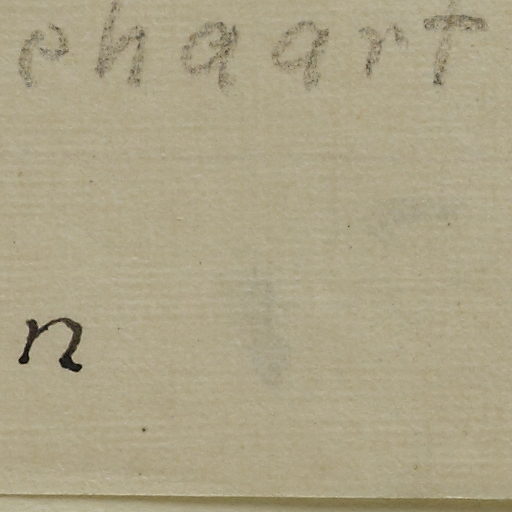 phaart
n